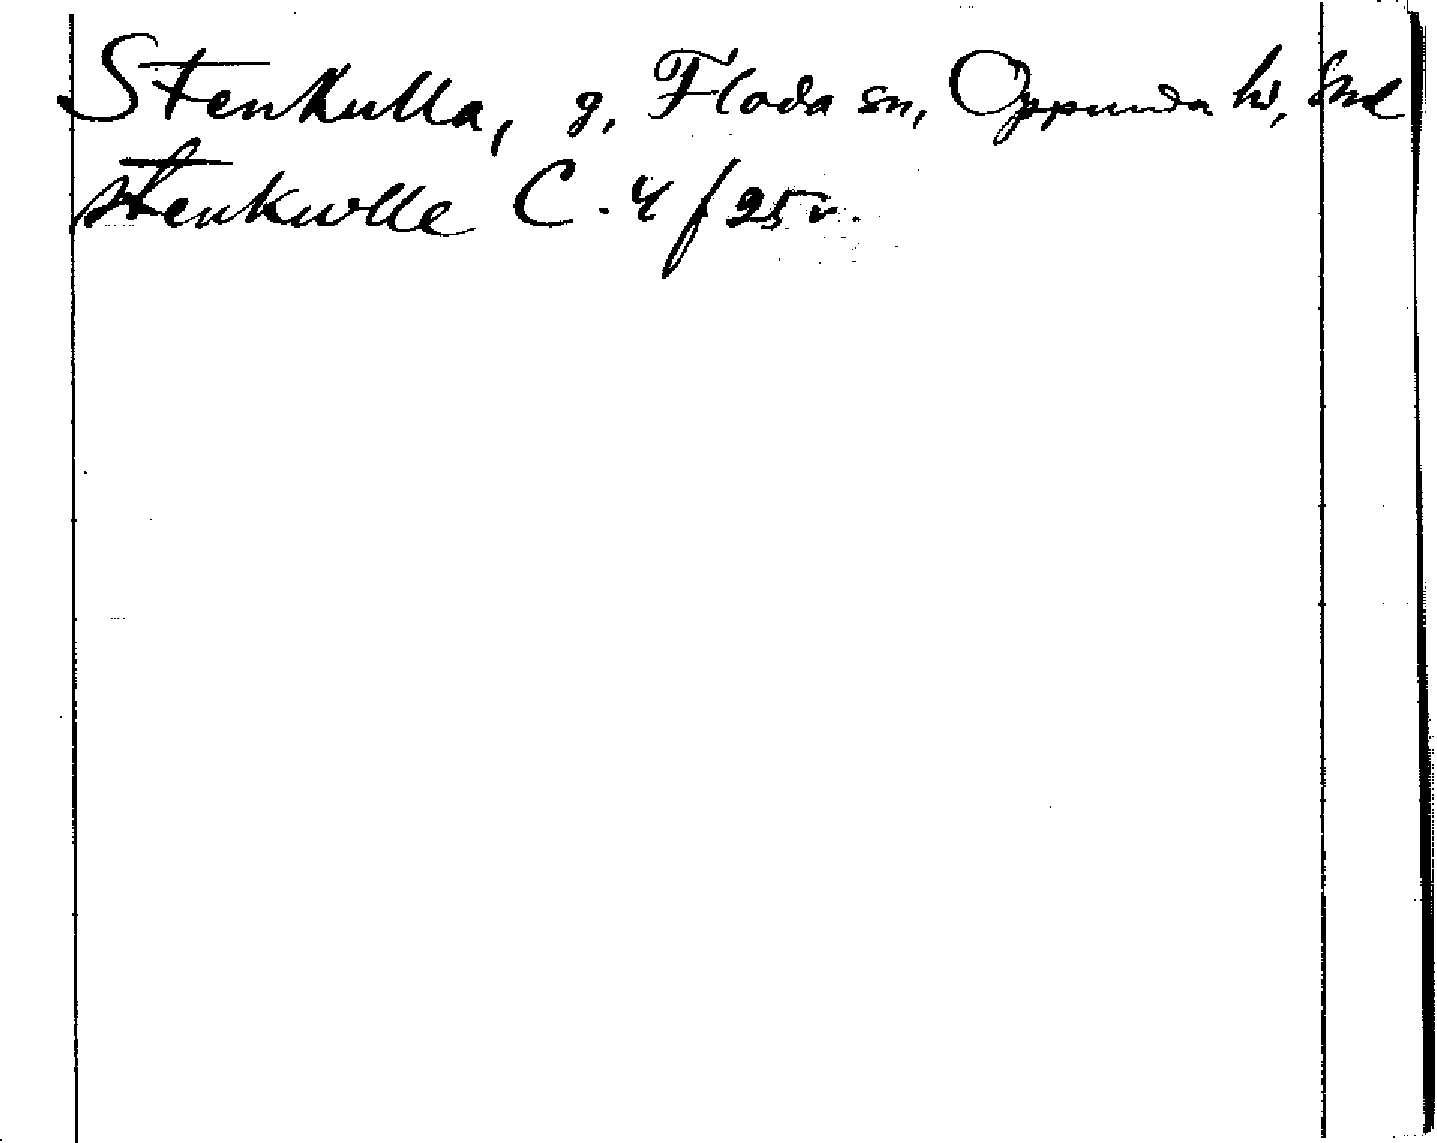 Stenkulla, g, Floda sn, Oppunda hd, Smd
stenkwlle C. 4 f 25 v.